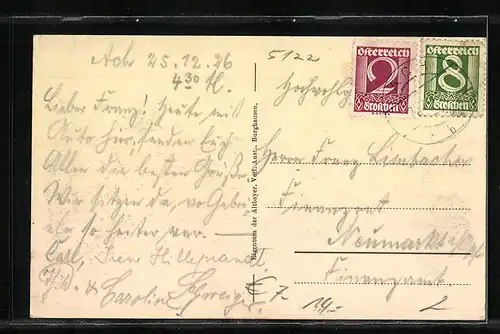 Ach 25.12.26
4 30 N.
Lieber Franz! Heute mit
Auto hier, senden Euch
Allen die besten Grüße.
Wir sitzen da, wo
so heiter war. —
Hillemand
& Carolin
Eigentum der Altbayer. Verl.-Anst., Burghausen.
5122
Hochwohlg.
Österreich
2
Groschen
Österreich
8
Groschen
Herrn Franz Limbacher
Finanzrat
Neumarkt
Finanzamt.
€ 7.-
14.-